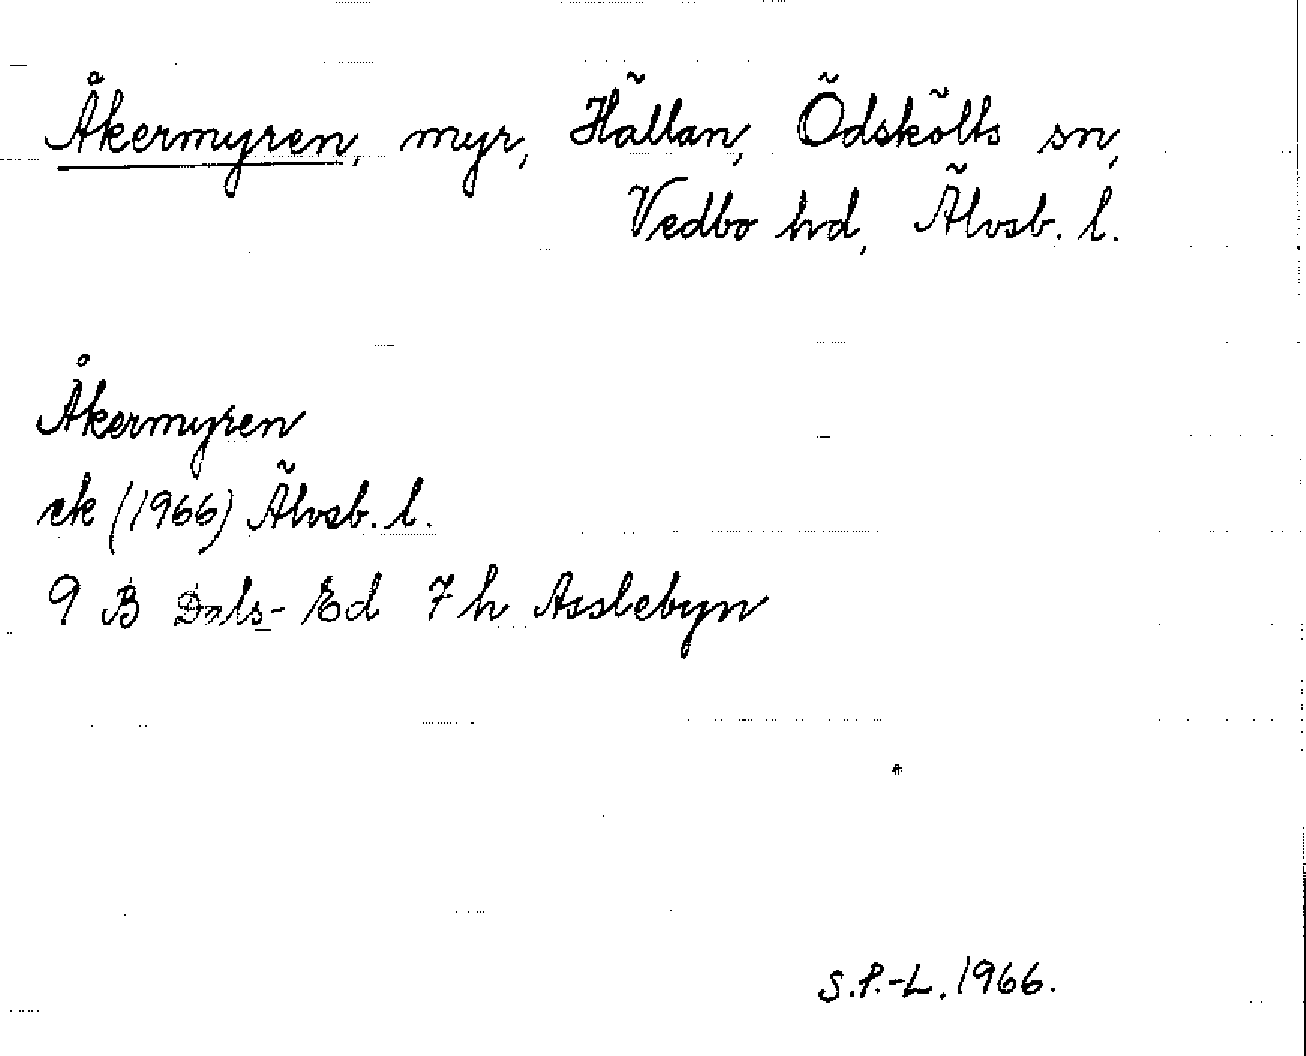 Åkermyren, myr, Hällan, Ödskölts sn,
Vedbo hd, Älvsb. l.
Åkermyren
ek (1966) Älvsb. l.
9 B Dals-Ed 7 h Asslebyn
S.P.-L. 1966.